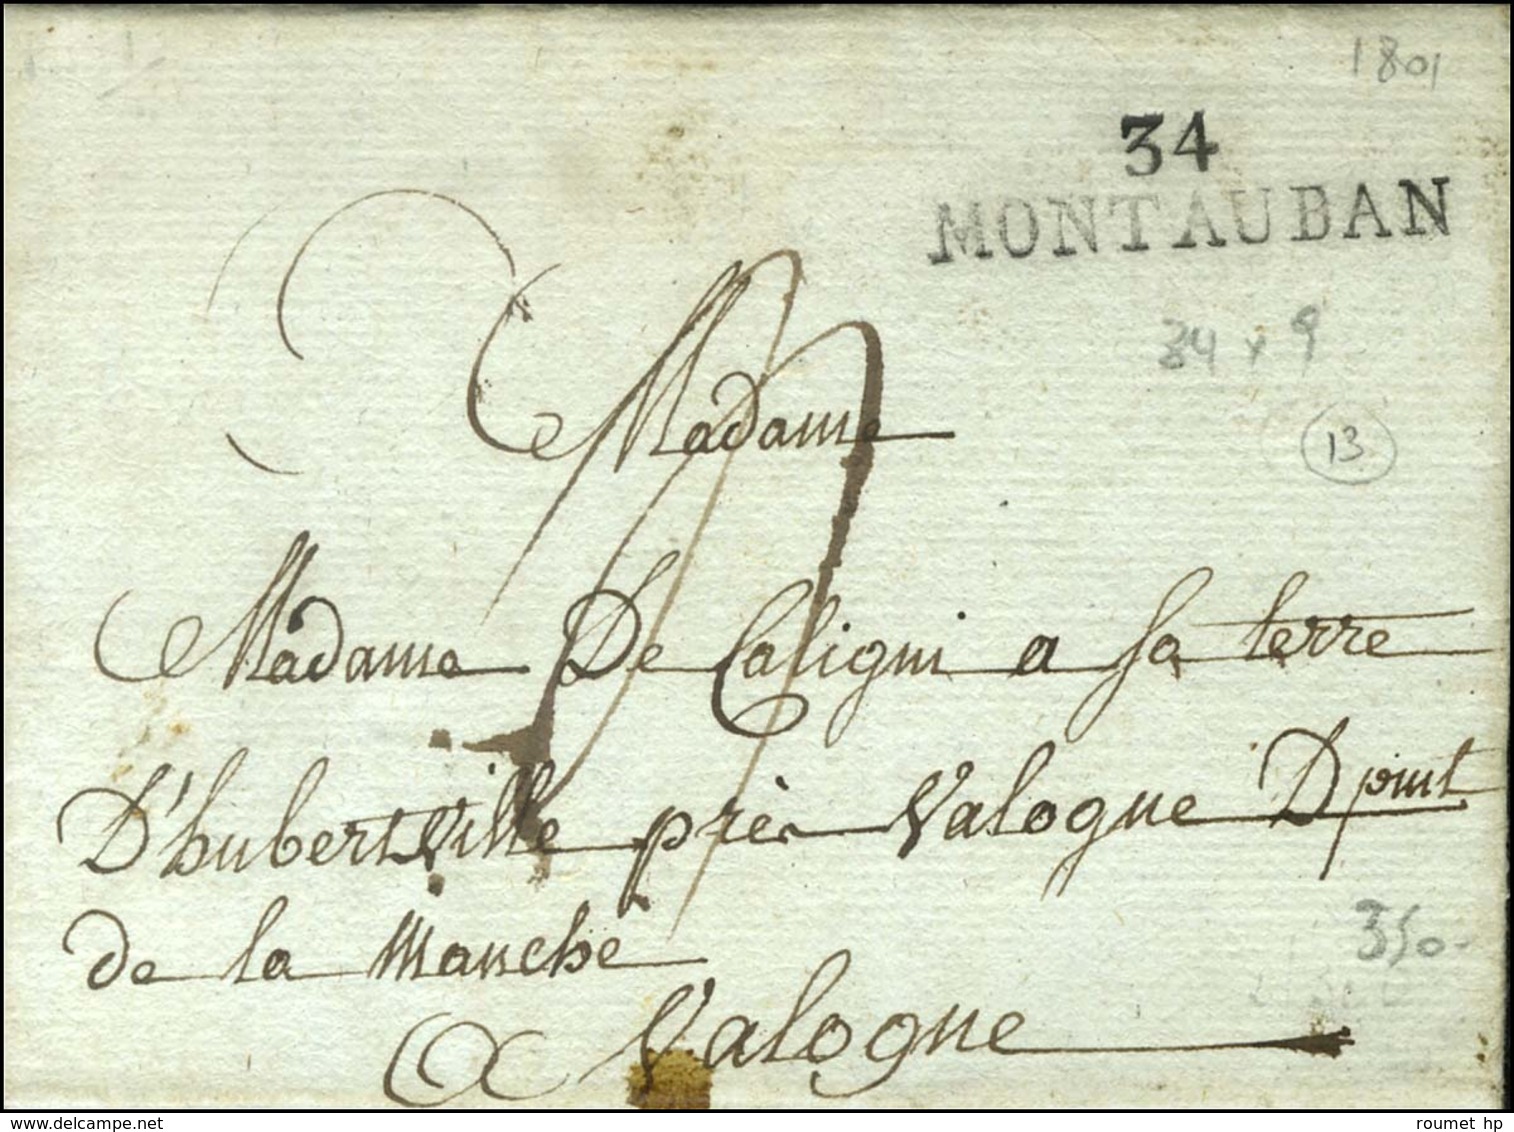 1801
34
MONTAUBAN
34 x 9
13
Madame
Madame De Caligni a sa terre
D'hubertville près Valogne Dpmt
de la Manche
350-
a Valogne
delcampe.net
roumet hp